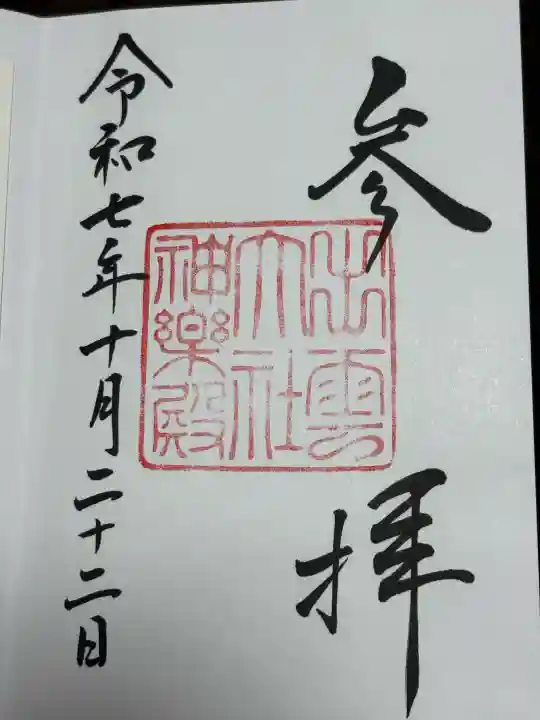 参拝
出雲
大社
神楽殿
令和七年十月二十二日